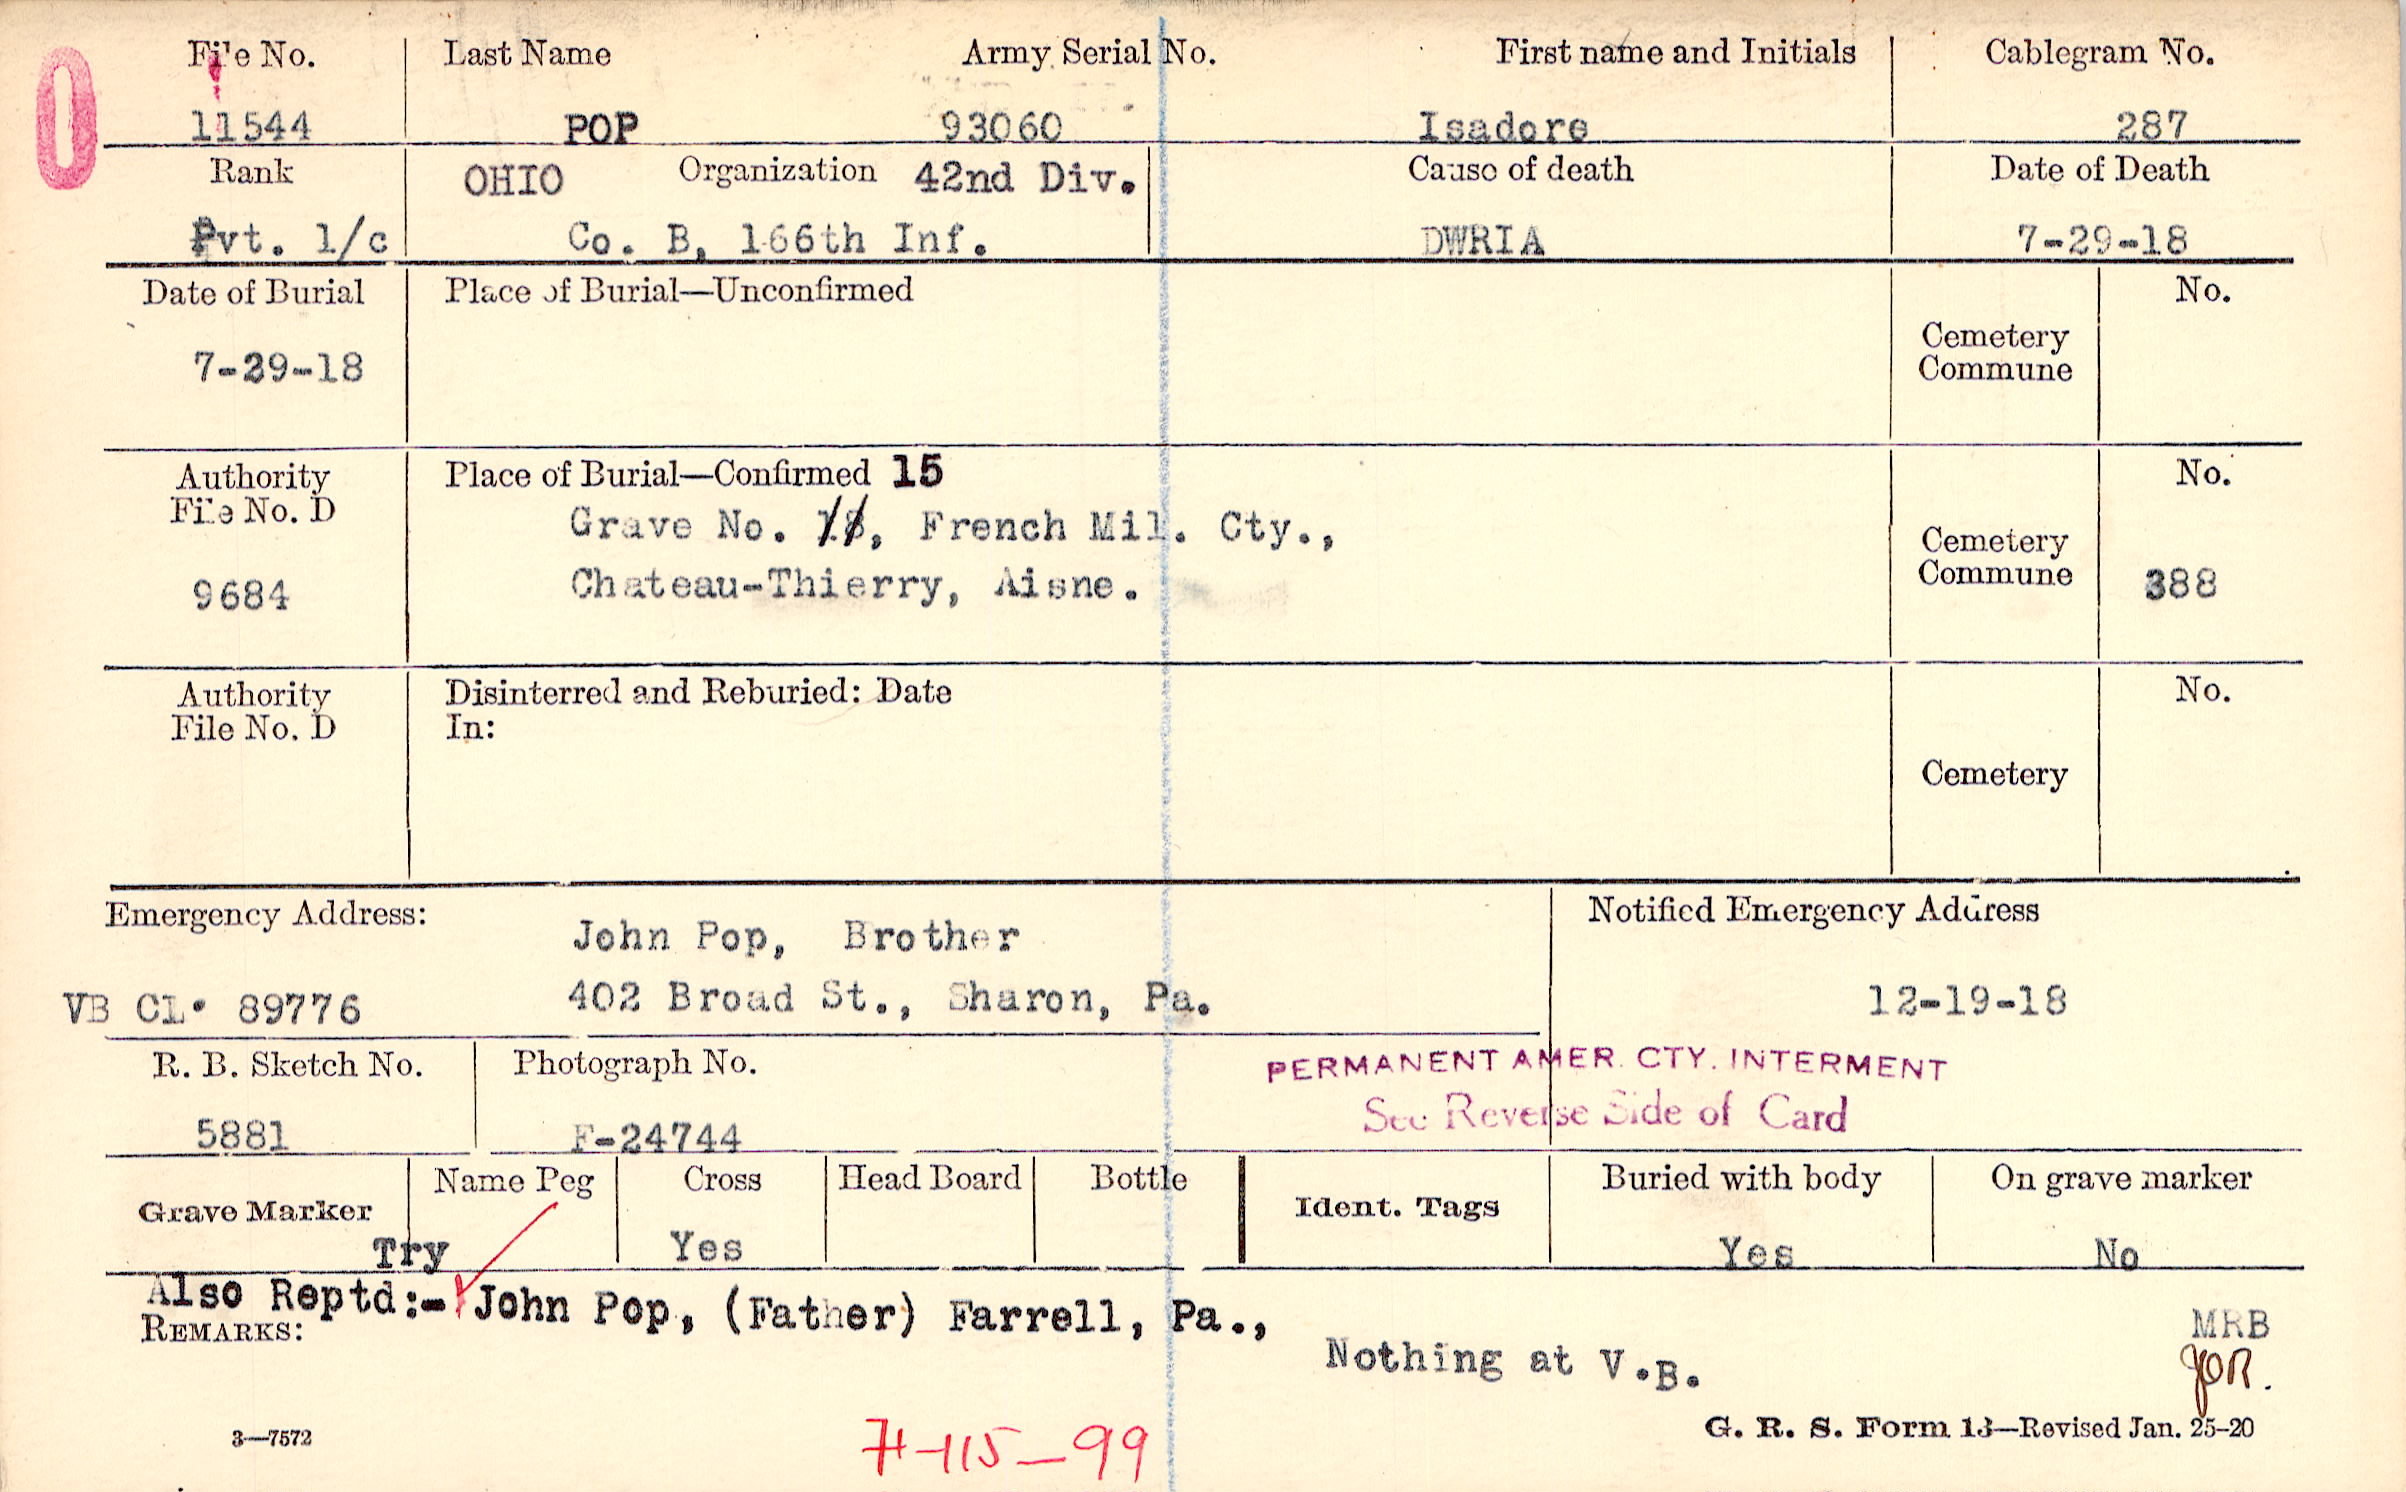 0
File No. Last Name Army Serial No. First name and Initials Cablegram No.
11544 POP 93060 Isadore 287
Rank OHIO Organization 42nd Div. Cause of death Date of Death
Pvt. 1/c Co. B, 166th Inf. DWRIA 7-29-18
Date of Burial Place of Burial—Unconfirmed No.
Cemetery
Commune
7-29-18
Authority Place of Burial—Confirmed 15 No.
File No. D
Grave No. 18, French Mil. Cty.,
Cemetery
Commune 388
9684 Chateau-Thierry, Aisne.
Authority Disinterred and Reburied: Date No.
File No. D In:
Cemetery
Emergency Address: Notified Emergency Address
John Pop, Brother
VB CL. 89776 402 Broad St., Sharon, Pa. 12-19-18
R. B. Sketch No. Photograph No. PERMANENT AMER. CTY. INTERMENT
See Reverse Side of Card
5881 F-24744
Name Peg Cross Head Board Bottle Buried with body On grave marker
Grave Marker Ident. Tags
Try Yes Yes No
Also Reptd:- John Pop, (Father) Farrell, Pa.,
REMARKS: MRB
Nothing at V.B.
JOR.
3—7572 G. R. S. Form 13—Revised Jan. 25-20
7-115-99